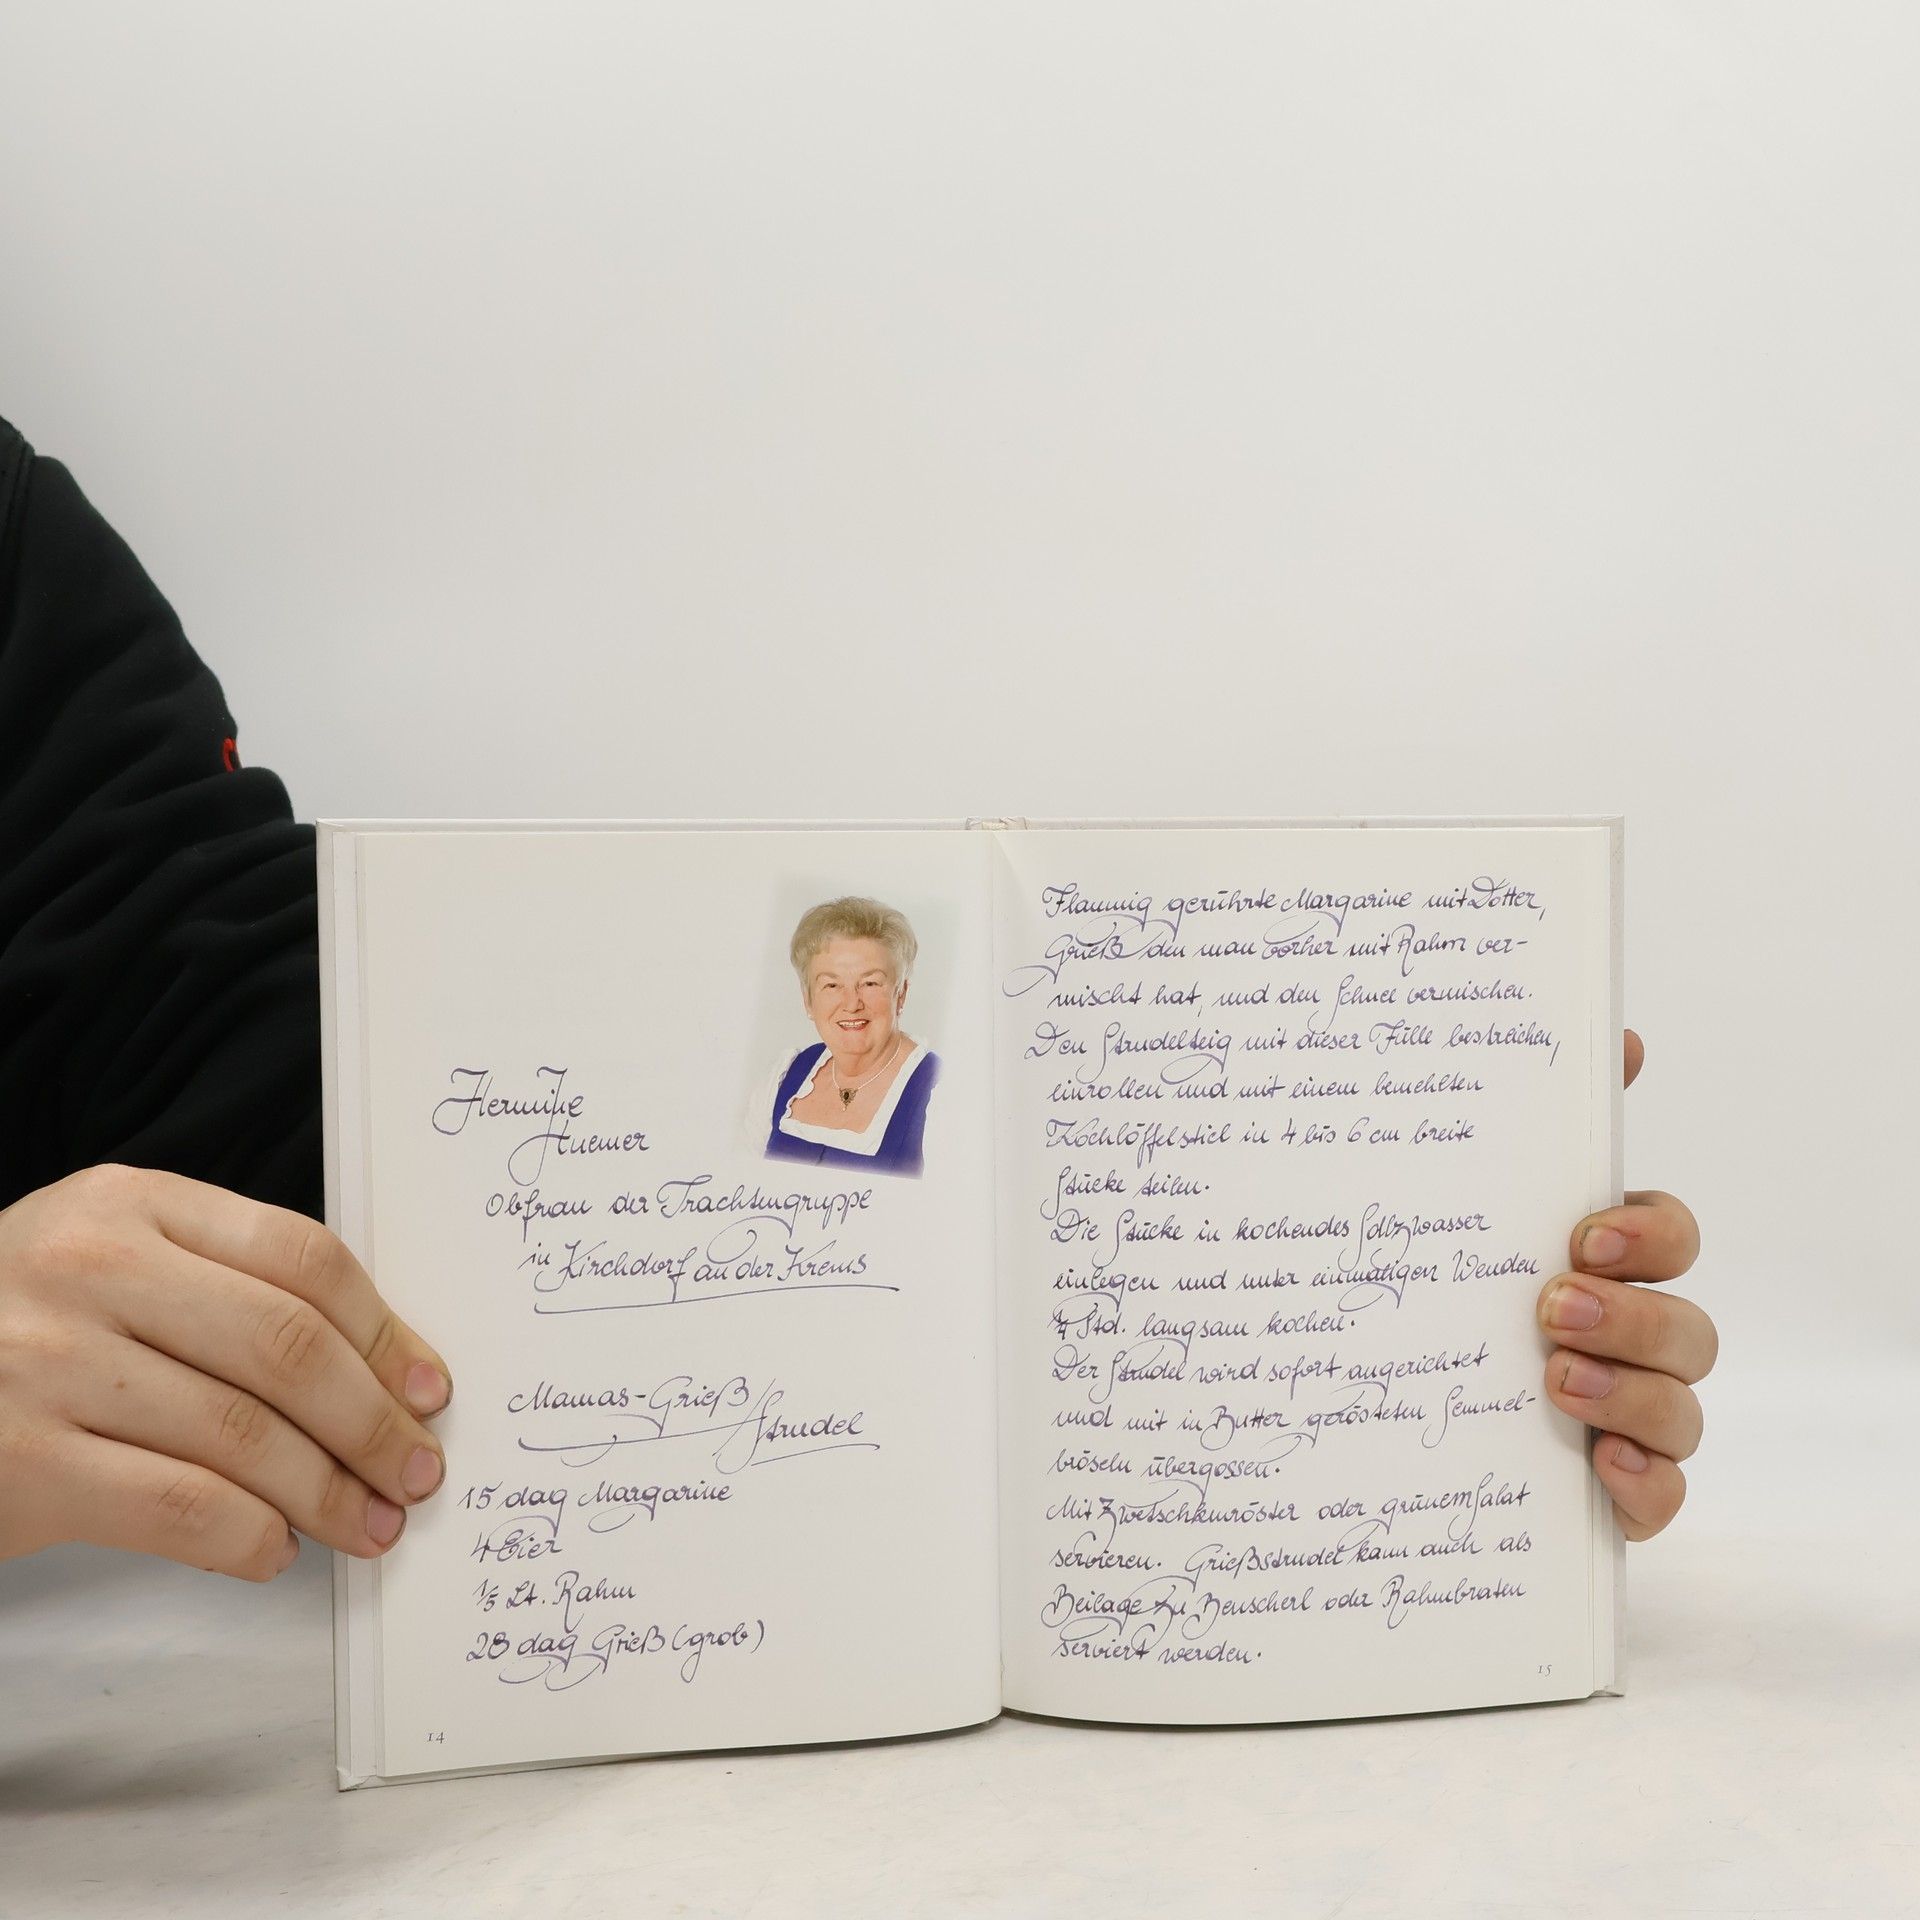 Hermine
Huemer
Obfrau der Trachtengruppe
in Kirchdorf an der Krems
Mamas-Grieß
Strudel
15 dag Margarine
4 Eier
1/5 Lt. Rahm
28 dag Grieß (grob)
14
Flaumig gerührte Margarine mit Dotter,
Grieß den man vorher mit Rahm ver-
mischt hat, und den Schnee vermischen.
Den Strudelteig mit dieser Fülle bestreichen,
einrollen und mit einem bemehlten
Kochlöffelstiel in 4 bis 6 cm breite
Stücke teilen.
Die Stücke in kochendes Salzwasser
einlegen und unter einmaligen Wenden
1/4 Std. langsam kochen.
Der Strudel wird sofort angerichtet
und mit in Butter gerösteten Semmel-
bröseln übergossen.
Mit Zwetschkenröster oder grünem Salat
servieren. Grießstrudel kann auch als
Beilage zu Beuscherl oder Rahmbraten
serviert werden.
15